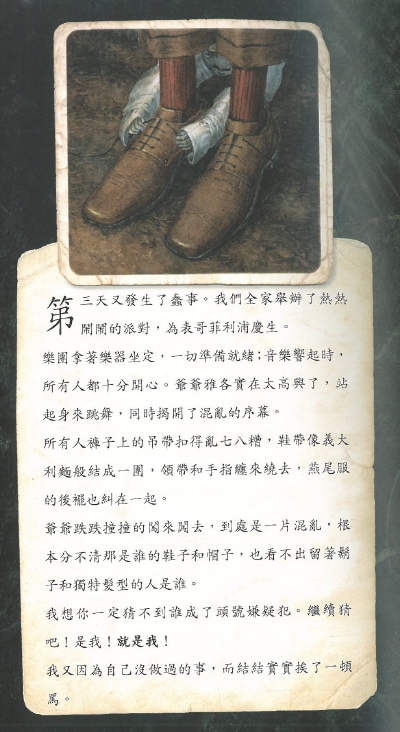 第三天又發生了蠢事。我們全家舉辦了熱熱
鬧鬧的派對，為表哥菲利浦慶生。
樂團拿著樂器坐定，一切準備就緒；音樂響起時，
所有人都十分開心。爺爺雅各實在太高興了，站
起身來跳舞，同時揭開了混亂的序幕。
所有人褲子上的吊帶扣得亂七八糟，鞋帶像義大
利麵般結成一團，領帶和手指纏來繞去，燕尾服
的後襬也糾在一起。
爺爺跌跌撞撞的闖來闖去，到處是一片混亂，根
本分不清那是誰的鞋子和帽子，也看不出留著鬍
子和獨特髮型的人是誰。
我想你一定猜不到誰成了頭號嫌疑犯。繼續猜
吧！是我！就是我！
我又因為自己沒做過的事，而結結實實挨了一頓
罵。